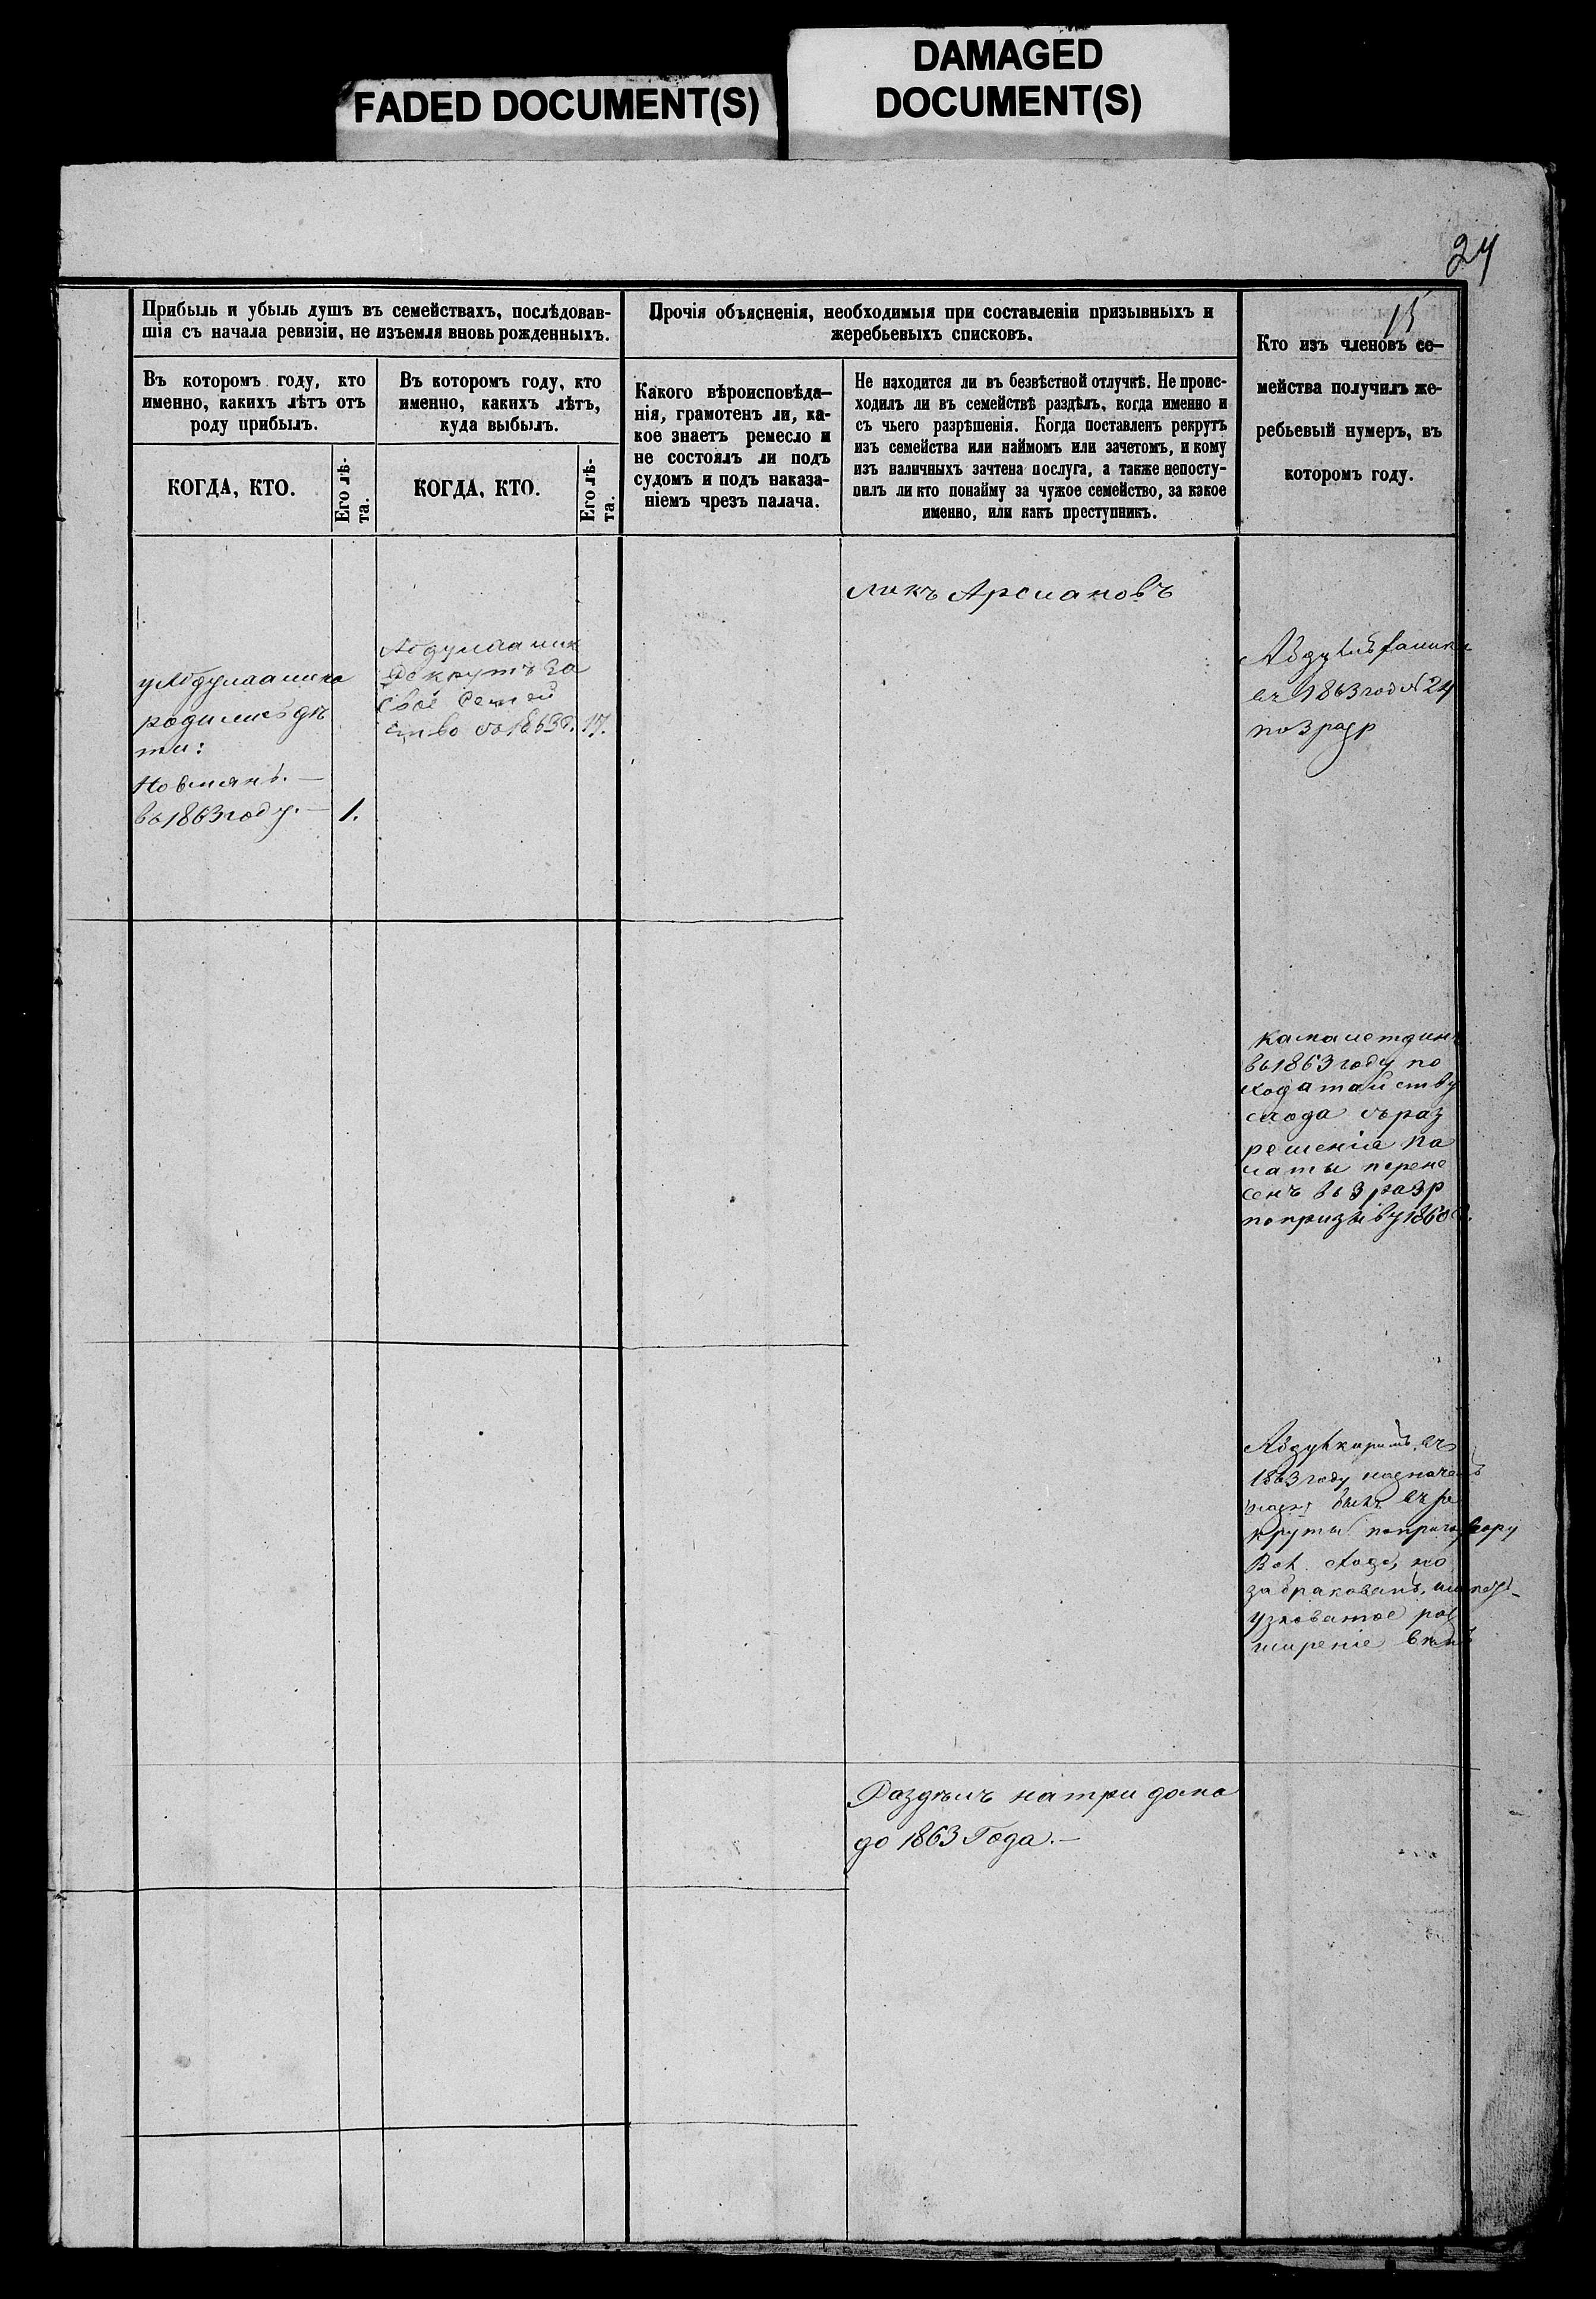 FADED DOCUMENT(S)
DAMAGED
DOCUMENT(S)
24
15
Прибыль и убыль душъ въ семействахъ, послѣдовав-
шія съ начала ревизіи, не изъемля вновь рожденныхъ.
Въ которомъ году, кто
именно, какихъ лѣтъ отъ
роду прибылъ.
КОГДА, КТО.
Его лѣ-
та.
Въ которомъ году, кто
именно, какихъ лѣтъ,
куда выбылъ.
КОГДА, КТО.
Его лѣ-
та.
Прочія объясненія, необходимыя при составленіи призывныхъ и
жеребьевыхъ списковъ.
Какого вѣроисповѣда-
нія, грамотенъ ли, ка-
кое знаетъ ремесло и
не состоялъ ли подъ
судомъ и подъ наказа-
ніемъ чрезъ палача.
Не находится ли въ безвѣстной отлучкѣ. Не проис-
ходилъ ли въ семействѣ раздѣлъ, когда именно и
съ чьего разрѣшенія. Когда поставленъ рекрутъ
изъ семейства или наймомъ или зачетомъ, и кому
изъ наличныхъ зачтена послуга, а также непосту-
пилъ ли кто понайму за чужое семейство, за какое
именно, или какъ преступникъ.
Кто изъ членовъ се-
мейства получилъ же-
ребьевый нумеръ, въ
которомъ году.
родились дѣ
ти:
въ 1863 году. — 1.
рекрутъ за
свое семей
ство въ 1863 г. 17.
ликъ Арслановъ
въ 1863 год № 24
по 3 разр
Камалетдинъ
въ 1863 году по
ходатайству
схода съ раз
решенія Па
латы перене
сенъ въ 3 разр
по призыву 1868 г.
Абдулкаримъ въ
1863 году назначенъ
былъ въ ре
круты по приговору
Вол. схода, но
забракованъ,
узловатое рас
ширеніе венъ
Раздѣлъ на три дома
до 1863 Года. —